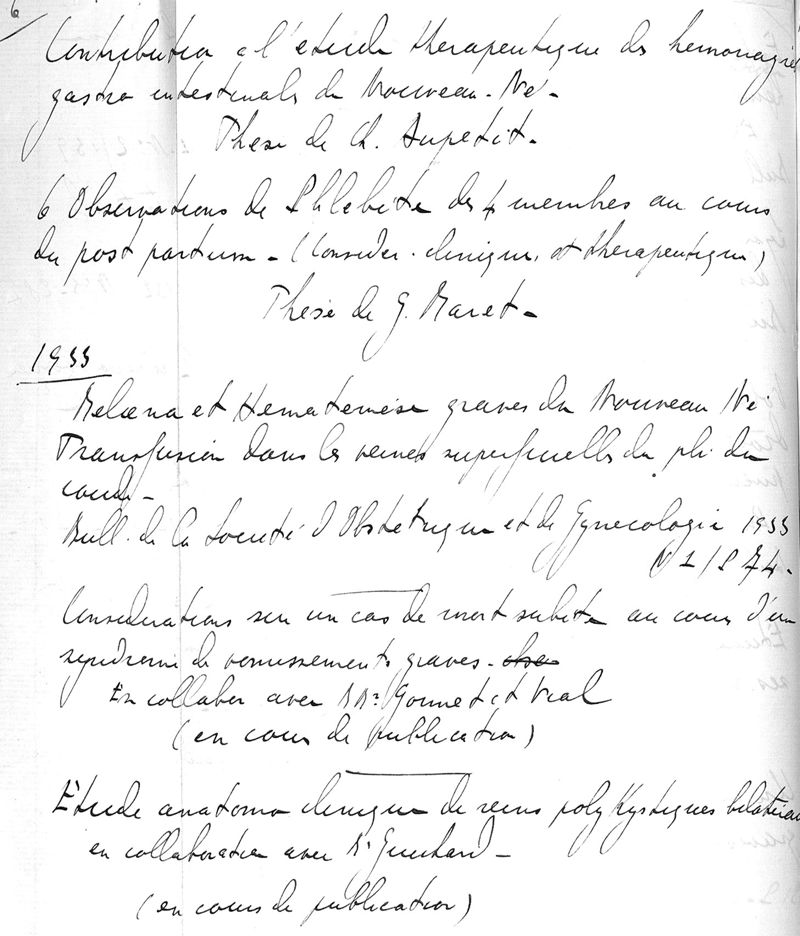 6
Contribution a l'etude therapeutique des hemorragies
gastro intestinales du Nouveau-Né -
These de Ch. Dupetit -
6 Observations de Phlebite des 4 membres au cours
du post partum - (Consider. clinique et therapeutique)
These de G. Maret -
1933
Melœna et Hematemese graves du Nouveau Né
Transfusion dans les veines superficielles du pli du
coude -
Bull. de la Societé d'Obstetrique et de Gynecologie 1933
N 1 / P 74 -
Considerations sur un cas de mort subite au cours d'un
syndrome de vomissements graves -
En collabor avec Drs Gonnet et Vial
(en cours de publication)
Etude anatomo clinique de reins polykystiques bilateraux
en collaboration avec Dr Guichard -
(en cours de publication)